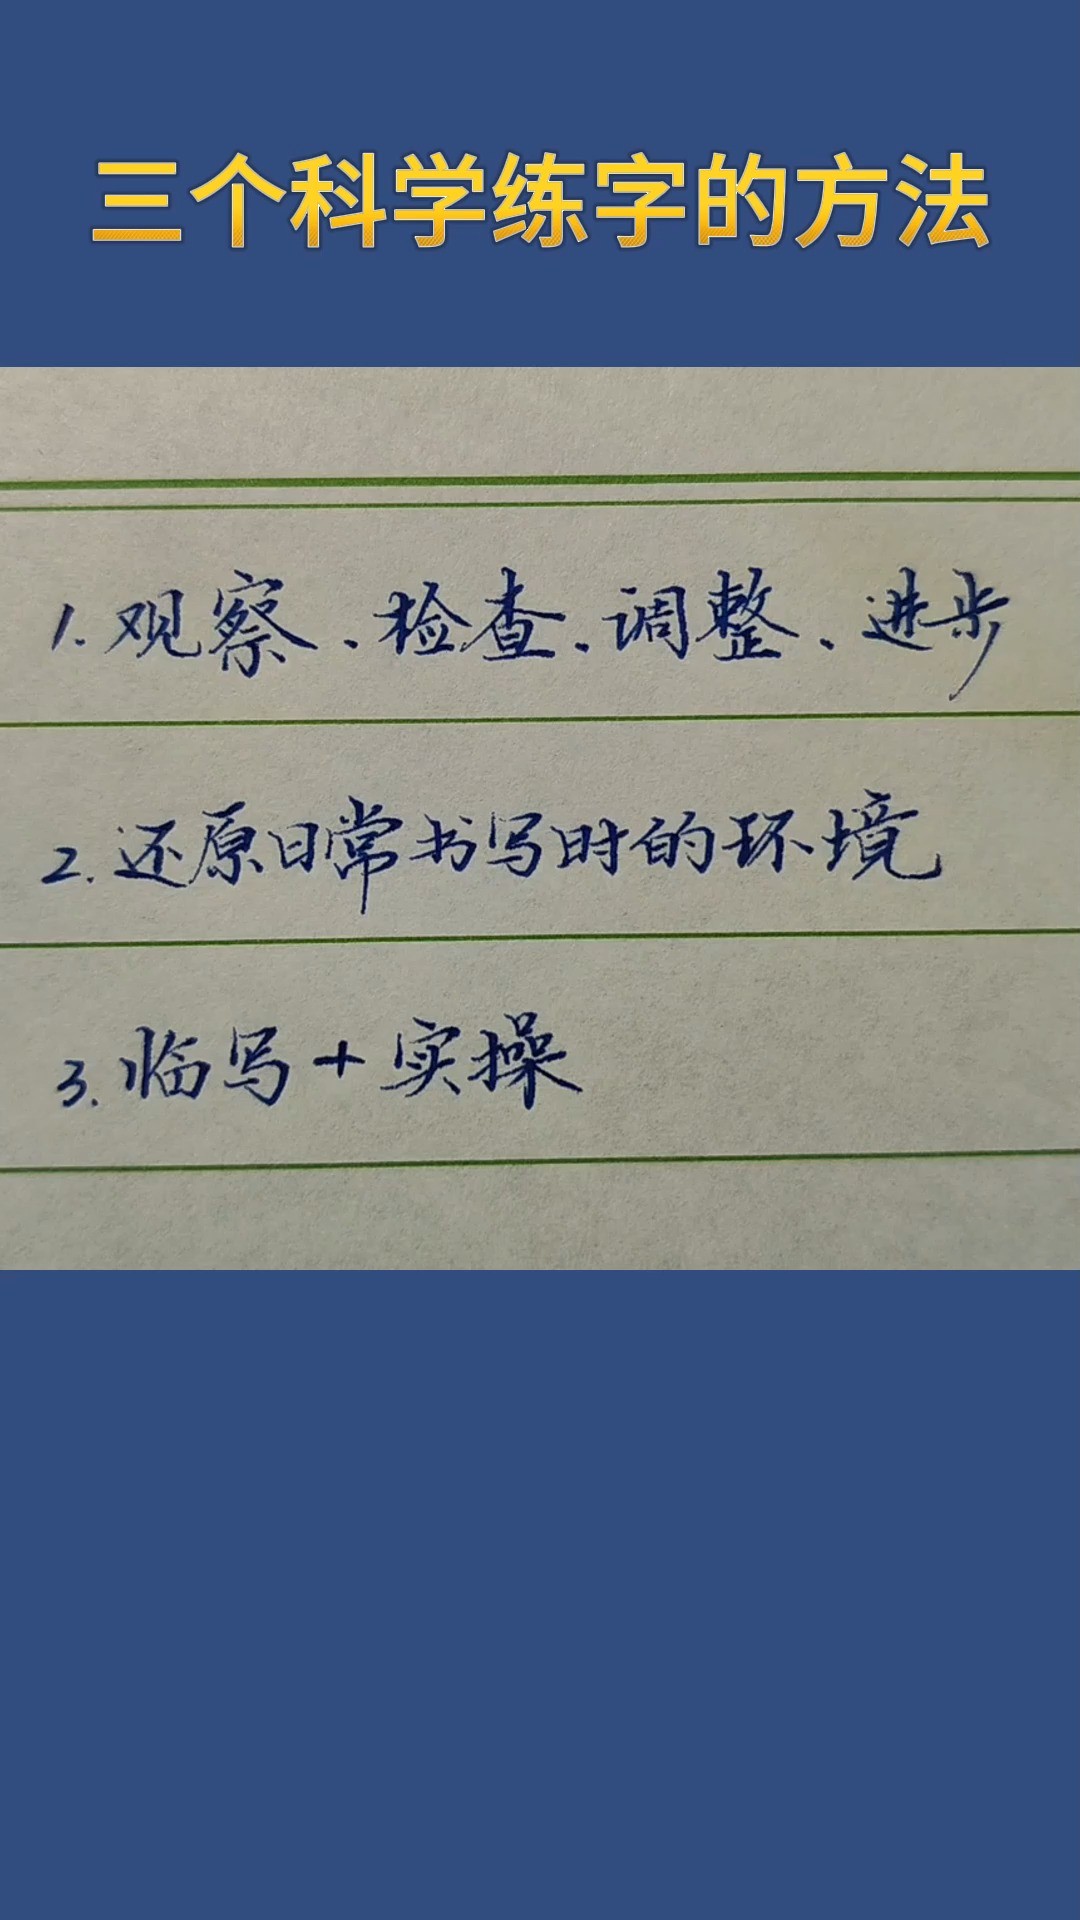 三个科学练字的方法
1. 观察、检查、调整、进步
2. 还原日常书写时的环境
3. 临写+实操